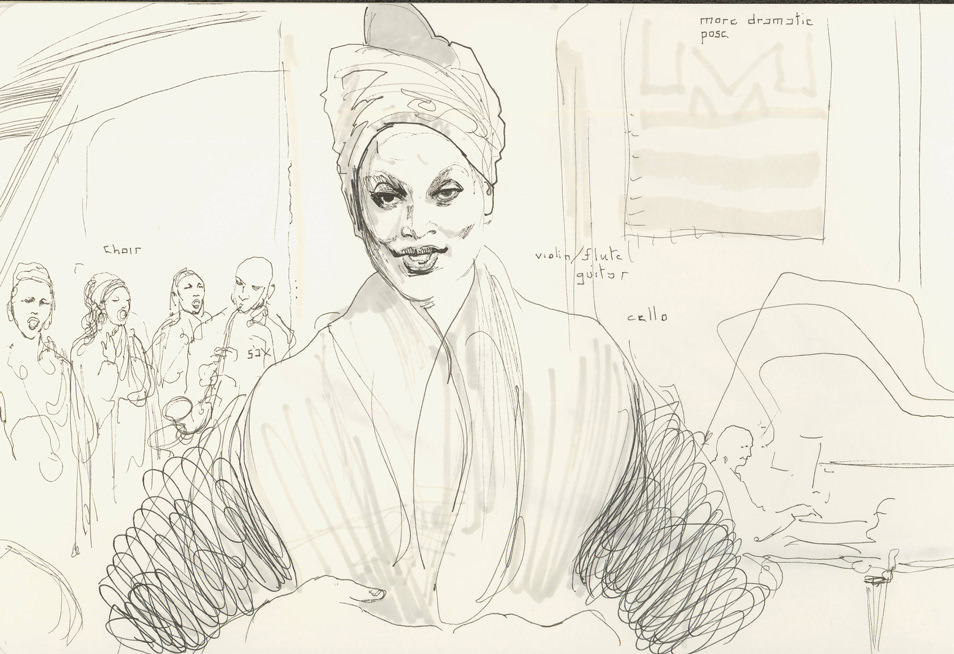 more dramatic
pose
choir
violin/flute
guitar
cello
sax